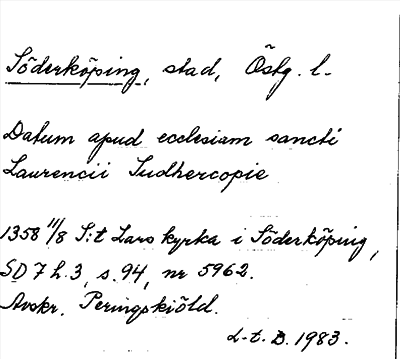 Söderköping, stad, Östg. l.
Datum apud ecclesiam sancti
Laurencii Sudhercopie
1358 11/8 S:t Lars kyrka i Söderköping,
SD 7 h. 3, s. 94, nr 5962.
Avskr. Peringskiöld.
L-t. B. 1983.